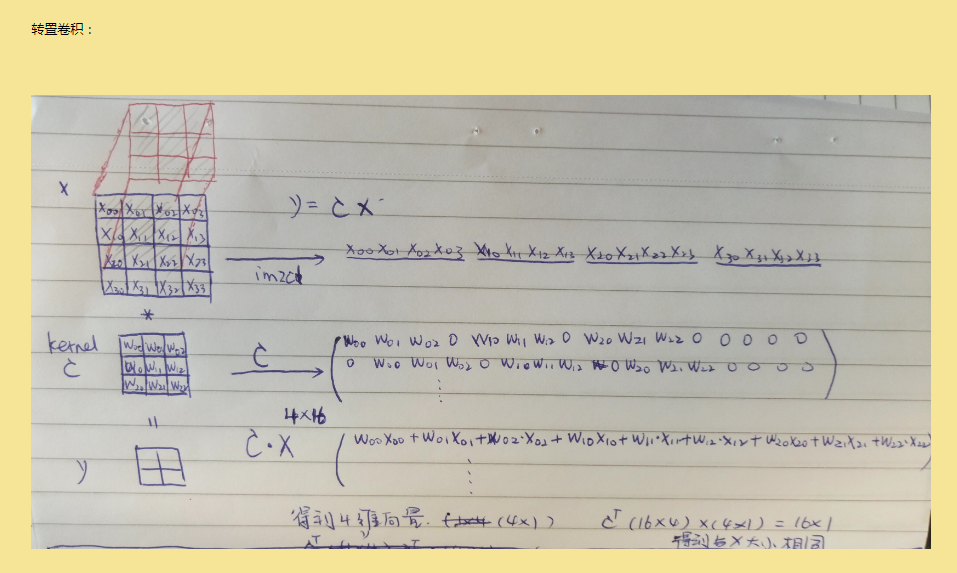 转置卷积：
X
y = C X
X00 X01 X02 X03
X10 X11 X12 X13
X20 X21 X22 X23
X30 X31 X32 X33
im2col
X00 X01 X02 X03 X10 X11 X12 X13 X20 X21 X22 X23 X30 X31 X32 X33
*
kernel
C
W00 W01 W02
W10 W11 W12
W20 W21 W22
C
W00 W01 W02 0 W10 W11 W12 0 W20 W21 W22 0 0 0 0 0
0 W00 W01 W02 0 W10 W11 W12 0 W20 W21 W22 0 0 0 0
4×16
=
y
C·X
W00X00 + W01X01 + W02·X02 + W10X10 + W11·X11 + W12·X12 + W20X20 + W21X21 + W22·X22
得到4维向量. (4×1)
C^T (16×4) × (4×1) = 16×1
得到与X大小相同